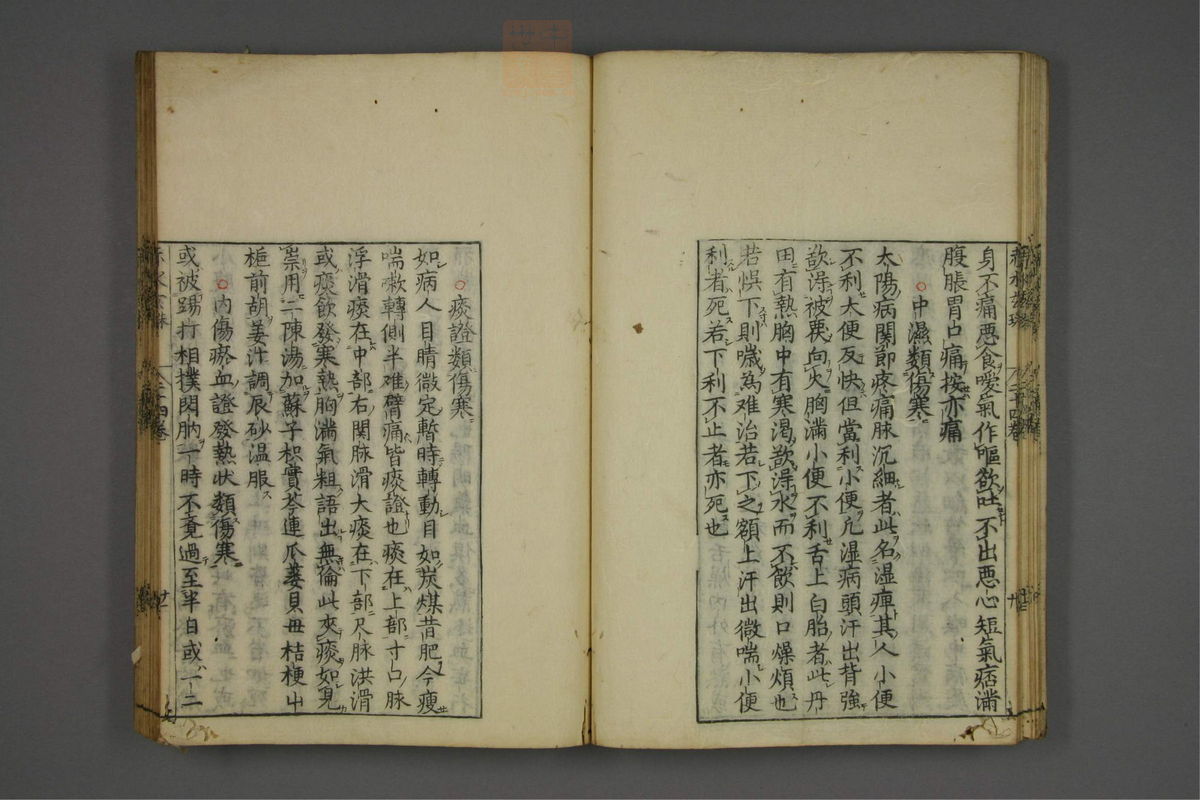 身不痛悪食噯氣作嘔欲吐不出悪心短氣痞滿
腹脹胃口痛按亦痛
中濕類傷寒
太陽病関節疼痛脉沉細者此名湿痺其人小便
不利大便反快但當利小便凢湿病頭汗出背強
欲得被覆向火胸滿小便不利舌上白胎者此丹
田有熱胸中有寒渴欲得水而不飲則口燥煩也
若悞下則噦為难治若下之額上汗出微喘小便
利者死若下利不止者亦死也
痰證類傷寒
如病人目睛微定暫時轉動目如炭煤昔肥今瘦
喘嗽轉側半难臂痛皆痰證也痰在上部寸口脉
浮滑痰在中部右関脉滑大痰在下部尺脉洪滑
或痰飲發寒熱胸滿氣粗語出無倫此夾痰如見
祟用二陳湯加蘇子枳實芩連瓜蔞貝母桔梗山
梔前胡姜汁調辰砂温服
内傷瘀血證發熱状類傷寒
或被踢打相撲閃肭一時不竟過至半日或一二